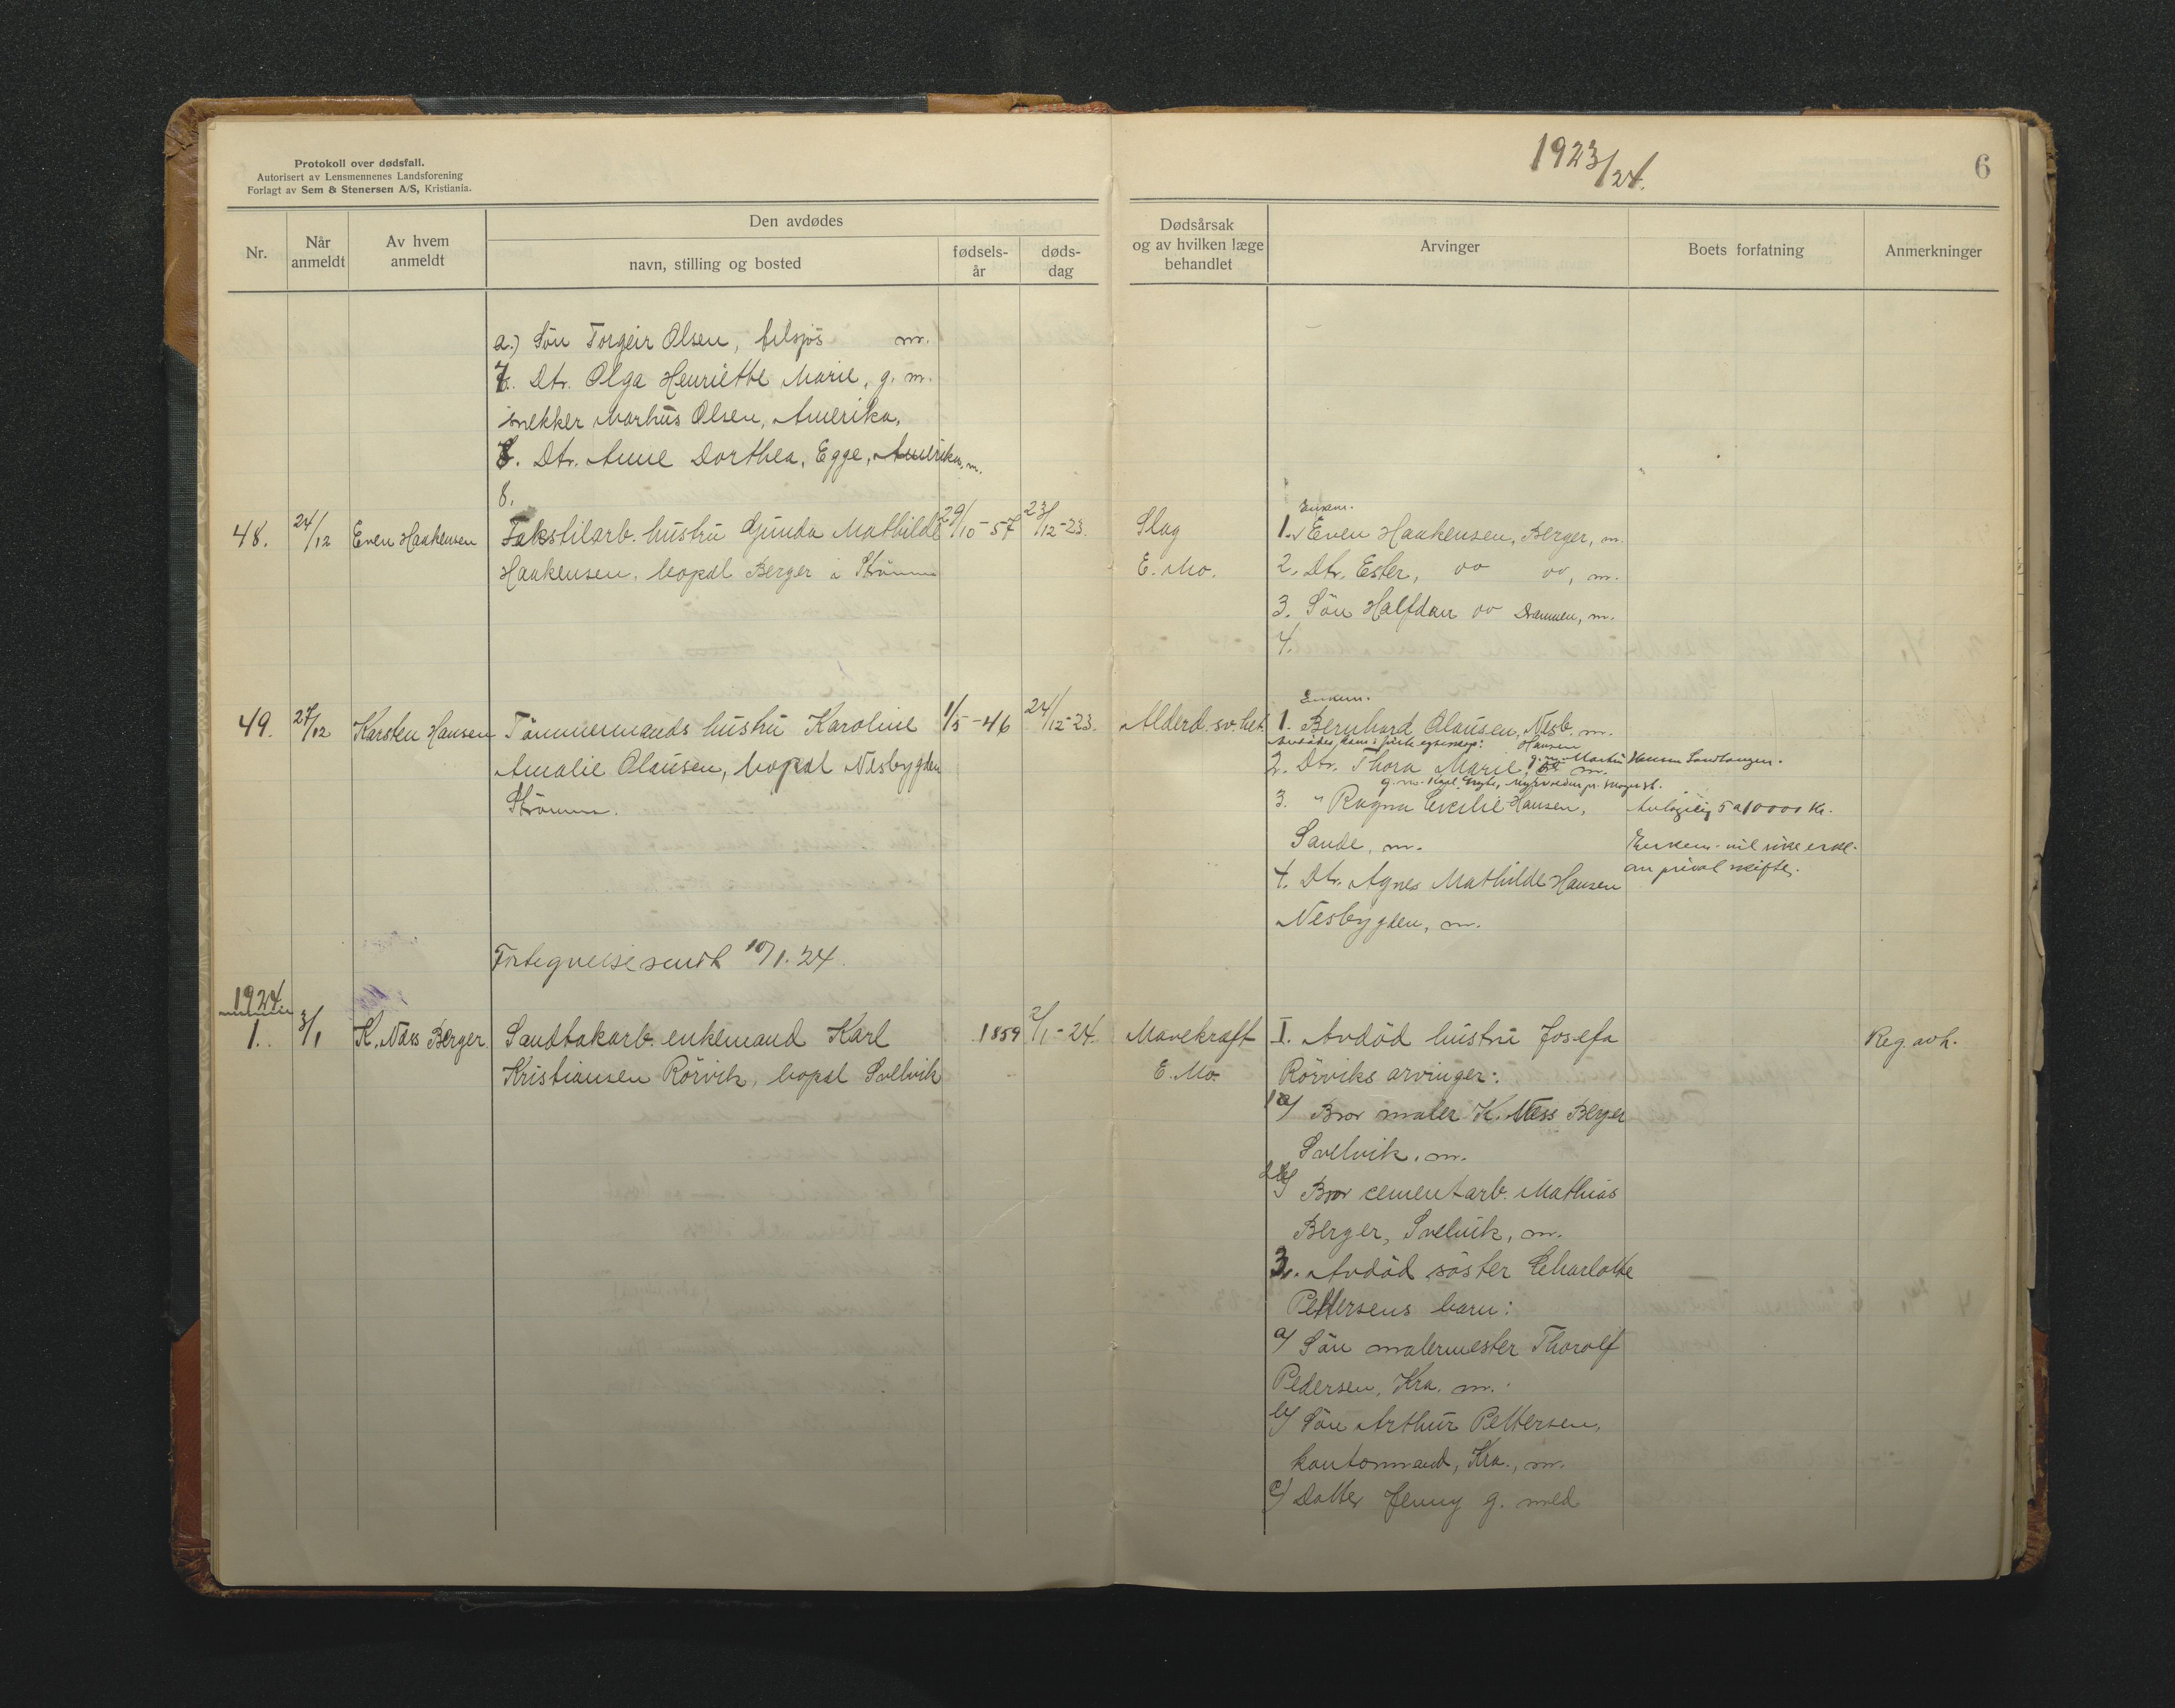 Protokoll over dødsfall.
Autorisert av Lensmennenes Landsforening
Forlagt av Sem & Stenersen A/S, Kristiania.
1923/24.
6
Nr.
Når anmeldt
Av hvem anmeldt
Den avdødes
navn, stilling og bosted
fødsels-år
døds-dag
Dødsårsak og av hvilken læge behandlet
Arvinger
Boets forfatning
Anmerkninger
a.) Sön Torgeir Olsen, m.
7. Dtr. Olga Henriette Marie, g. m.
snekker Markus Olsen, Amerika.
8. Dtr. Anne Dorthea, Egge, Amerika, m.
8.
48. 24/12 Even Haakensen
Tekstilarb. hustru Gunda Mathilde 29/10-57 23/12-23.
Haakensen, bopæl Berger i Strömm
Slag
E. Mo.
Enkem.
1. Even Haakensen, Berger, m.
2. Dtr. Ester, " ", m.
3. Sön Halfdan " Drammen, m.
4.
49. 27/12 Karsten Hansen
Tömmermands hustru Karoline 1/5-46 24/12-23.
Amalie Olausen, bopæl Nesbygden
Strömm.
Alderd.sv.het.
Enkem.
1. Bernhard Olausen, Nesb. m.
Avdödes barn i förste egteskap:
2. Dtr. Thora Marie, Hansen g. m. Martin Hansen Sandtangen.
3. " Ragna Cecilie Hansen,
Sande, m.
4. Dtr. Agnes Mathilde Hansen
Nesbygden, m.
Antagelig 5 a 10000 Kr.
Enkem. vil ikke
om privat skifte.
Fortegnelse sendt 10/1.24.
1924.
1. 3/1 K. Næss Berger.
Sandtakarb. enkemand Karl 1859 2/1-24.
Kristiansen Rörvik, bopæl Svelvik
Mavekræft
E. Mo.
I. Avdöd hustru Josefa
Rörviks arvinger:
1a) Bror maler K. Næss Berger
Svelvik, m.
2b) Bror cementarb. Mathias
Berger, Svelvik, m.
3. Avdöd söster Charlotte
Pettersens barn:
a) Sön malermester Thorolf
Pedersen, Kra. m.
b) Sön Arthur Pettersen,
kontormand, Kra., m.
c) Datter Jenny g. med
Reg. avh.